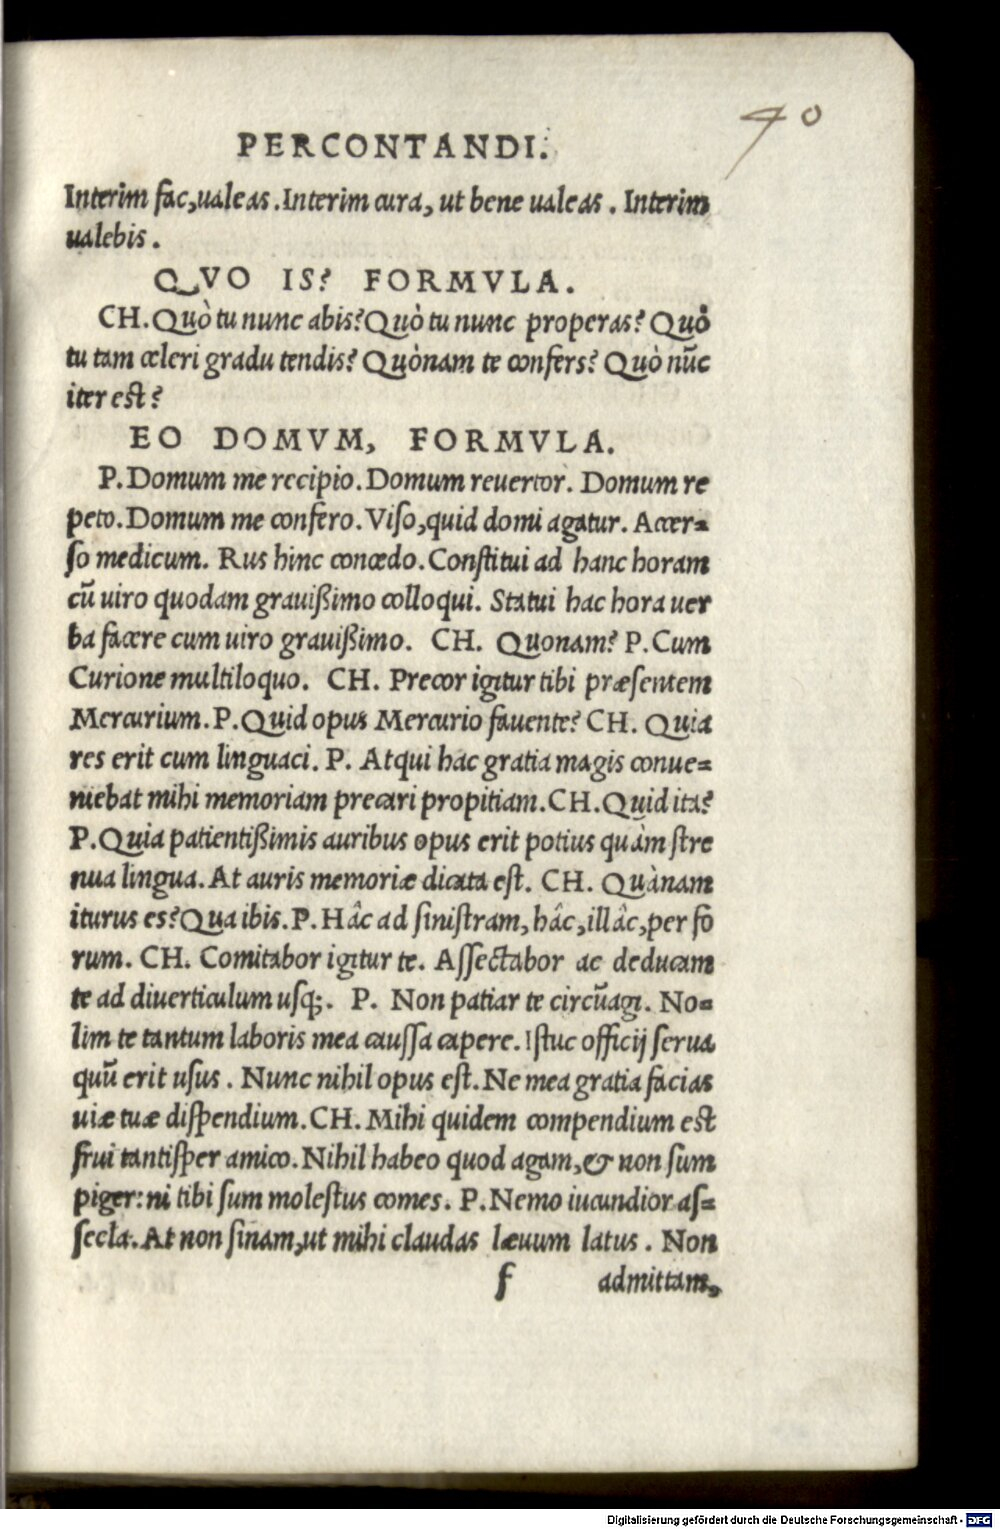 40
PERCONTANDI.
Interim fac, ualeas. Interim cura, ut bene ualeas. Interim
ualebis.
QVO IS? FORMVLA.
CH. Quò tu nunc abis? Quò tu nunc properas? Quò
tu tam celeri gradu tendis? Quònam te confers? Quò nūc
iter est?
EO DOMVM, FORMVLA.
P. Domum me recipio. Domum reuertor. Domum re
peto. Domum me confero. Viso, quid domi agatur. Accer=
so medicum. Rus hinc concedo. Constitui ad hanc horam
cū uiro quodam grauißimo colloqui. Statui hac hora uer
ba facere cum uiro grauißimo. CH. Quonam? P. Cum
Curione multiloquo. CH. Precor igitur tibi præsentem
Mercurium. P. Quid opus Mercurio fauente? CH. Quia
res erit cum linguaci. P. Atqui hac gratia magis conue=
niebat mihi memoriam precari propitiam. CH. Quid ita?
P. Quia patientißimis auribus opus erit potius quàm stre
nua lingua. At auris memoriæ dicata est. CH. Quànam
iturus es? Qua ibis. P. Hâc ad sinistram, hâc, illâc, per fo
rum. CH. Comitabor igitur te. Assectabor ac deducam
te ad diuerticulum usq;. P. Non patiar te circūagi. No=
lim te tantum laboris mea caussa capere. Istuc officij serua
quū erit usus. Nunc nihil opus est. Ne mea gratia facias
uiæ tuæ dispendium. CH. Mihi quidem compendium est
frui tantisper amico. Nihil habeo quod agam, & non sum
piger: ni tibi sum molestus comes. P. Nemo iucundior as=
secla. At non sinam, ut mihi claudas læuum latus. Non
f admittam,
Digitalisierung gefördert durch die Deutsche Forschungsgemeinschaft - DFG